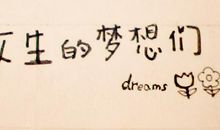 生的梦想们
dreams